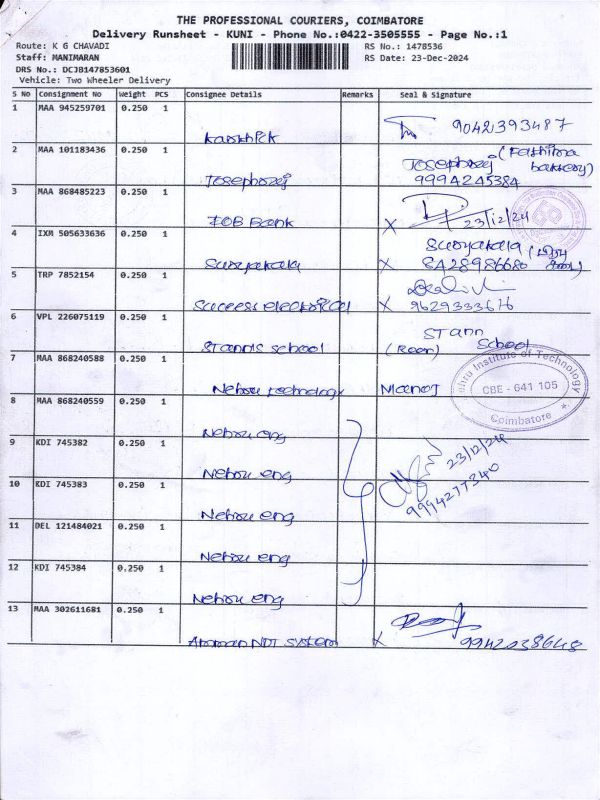 THE PROFESSIONAL COURIERS, COIMBATORE
Delivery Runsheet - KUNI - Phone No.:0422-3505555 - Page No.:1
Route: K G CHAVADI RS No.: 1478536
Staff: MANIMARAN RS Date: 23-Dec-2024
DRS No.: DCJB147853601
Vehicle: Two Wheeler Delivery
S No Consignment No Weight PCS Consignee Details Remarks Seal & Signature
1 MAA 945259701 0.250 1
Karthick 9042393487
2 MAA 101183436 0.250 1 (Fathima bakkery)
Josephraj Josephraj 9994245384
3 MAA 868485223 0.250 1
IOB Bank X 23/12/24
4 IXM 505633636 0.250 1 Suryakala
Suryakala X 8A28986680
5 TRP 7852154 0.250 1
Success electrical X 9629333676
6 VPL 226075119 0.250 1 ST Ann School
STanns school
7 MAA 868240588 0.250 1
Nehru technology Manoj
Institute of Technology
CBE - 641 105
Coimbatore
8 MAA 868240559 0.250 1
Nehru eng
9 KDI 745382 0.250 1
Nehru eng 23/12/24
10 KDI 745383 0.250 1 9994277340
Nehru eng
11 DEL 121484021 0.250 1
Nehru eng
12 KDI 745384 0.250 1
Nehru eng
13 MAA 302611681 0.250 1
NDT System X 9942038648